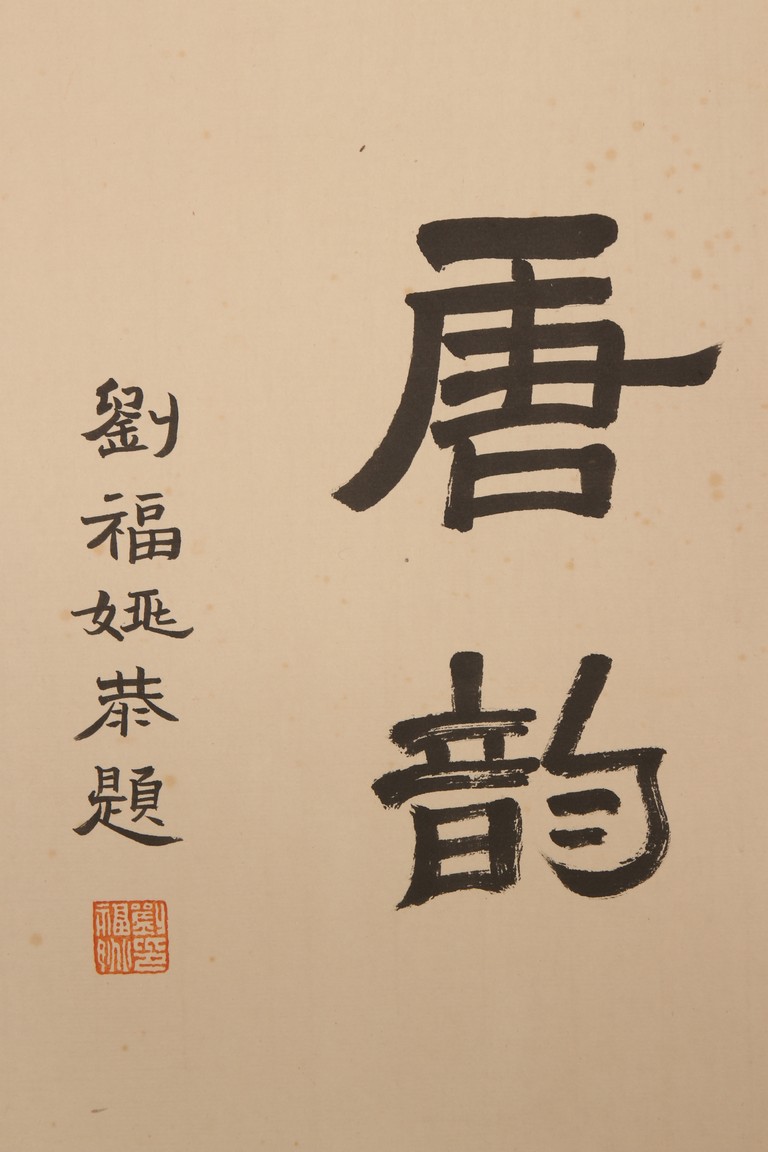 唐韵
劉福姚恭題
劉印福姚